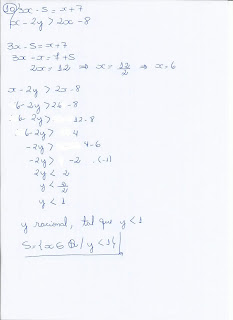 10) 3x - 5 = x + 7
x - 2y > 2x - 8
3x - 5 = x + 7
3x - x = 7 + 5
2x = 12 ⇒ x = 12/2 ⇒ x = 6
x - 2y > 2x - 8
6 - 2y > 26 - 8
6 - 2y > 12 - 8
6 - 2y > 4
-2y > 4 - 6
-2y > -2 .(-1)
2y < 2
y < 2/2
y < 1
y racional, tal que y < 1
S = {x ∈ Q / y < 1}